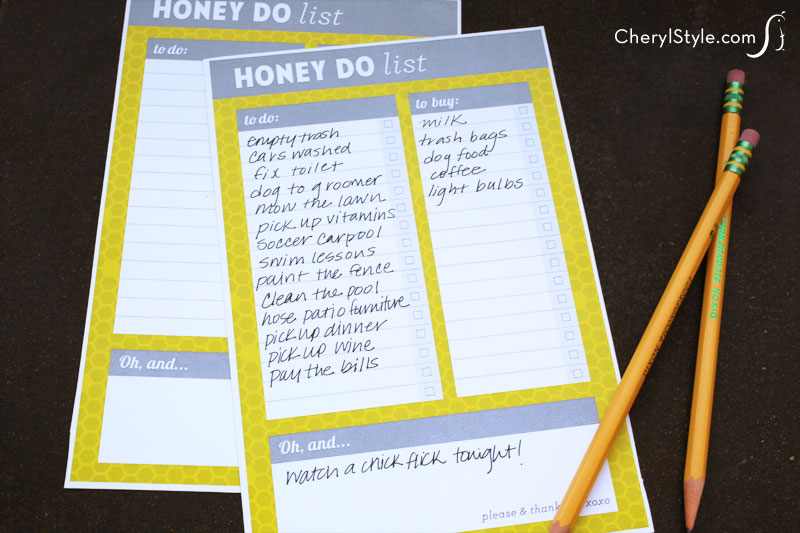 HONEY DO list
to do:
Oh, and...
CherylStyle.com
HONEY DO list
to do:
empty trash
cars washed
fix toilet
dog to groomer
mow the lawn
pick up vitamins
soccer carpool
swim lessons
paint the fence
clean the pool
hose patio furniture
pick up dinner
pick up wine
pay the bills
to buy:
milk
trash bags
dog food
coffee
light bulbs
Oh, and...
watch a chick flick tonight!
please & thank xoxo
DIXON TICONDEROGA